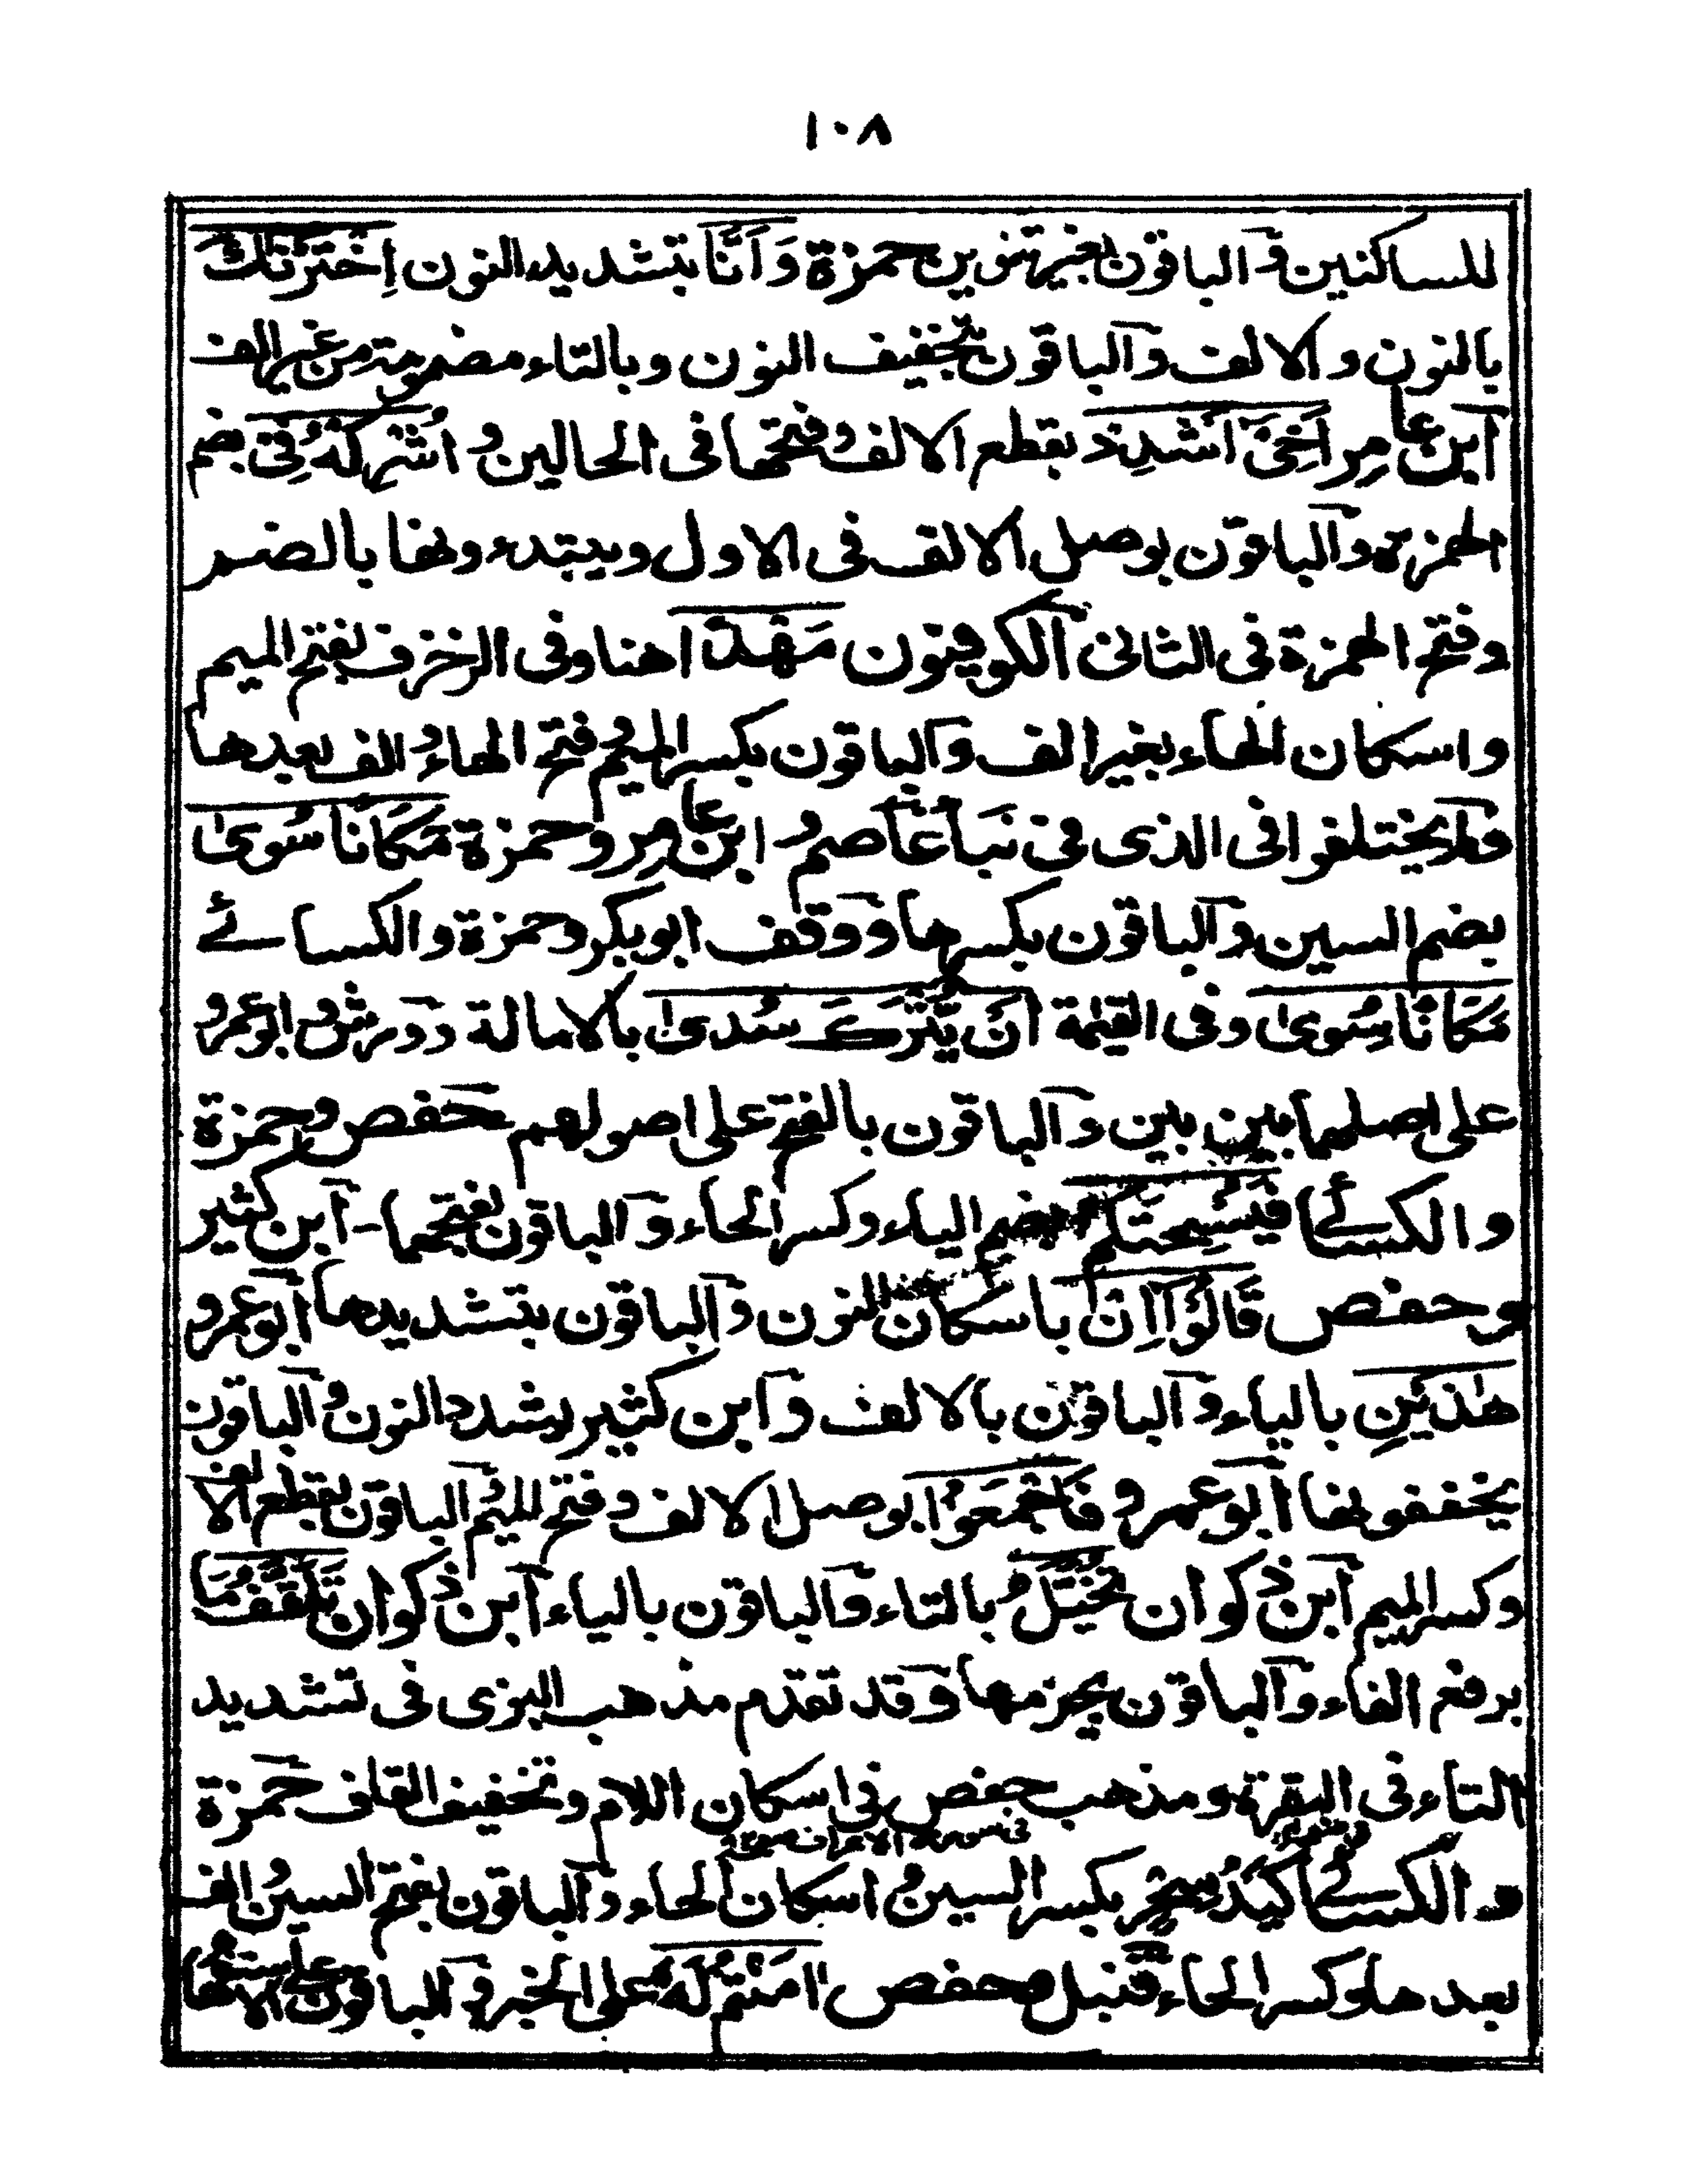 ١٠٨
للساكنين والباقون بغير تنوين حمزة وَاَنَّا بتشديد النون اِخْتَرْنٰكَ
بالنون والالف والباقون بتخفيف النون وبالتاء مضمومة من غير الف
ابن عامر اَخِىَ اَشْدِدْ بقطع الالف وفتحها فى الحالين و اُشْرِكْهُ فِىْ بضم
الهمزة والباقون بوصل الالف فى الاول ويبتدء ونها بالضم
وفتح الهمزة فى الثانى الكوفيون مَهْدًا هنا وفى الزخرف بفتح الميم
واسكان الهاء بغير الف والباقون بكسر الميم وفتح الهاء والف بعدها
ولم يختلفوا فى الذى فى نبأ عاصم و ابن عامر وحمزة مَكَانًا سُوىٰ
بضم السين والباقون بكسرها ووقف ابو بكر وحمزة والكسائے
مَكَانًا سِوىٰ وفى القيٰمة اَنْ يُّتْرَكَ سُدىٰ بالامالة وورش و ابو عمرو
على اصلهما بين بين والباقون بالفتح على اصولهم حفص وحمزة
والكسائے فَيُسْحِتَكُمْ بضم الياء وكسر الحاء والباقون بفتحهما - ابن كثير
وحفص قَالُوْا اِنْ باسكان النون والباقون بتشديدها ابو عمرو
هٰذَيْنِ بالياء والباقون بالالف وابن كثير يشدد النون والباقون
يخففونها ابو عمرو فَاجْمَعُوْا بوصل الالف وفتح الميم والباقون بقطع الالف
وكسر الميم ابن ذكوان تُخَيَّلُ بالتاء والباقون بالياء ابن ذكوان تَلْقَفُ مَا
برفع الفاء والباقون بجزمها وقد تقدم مذهب البزى فى تشديد
التاء فى البقرة ومذهب حفص فى اسكان اللام وتخفيف القاف حمزة
فى سورة الاعراف
والكسائے كَيْدُ سِحْرٍ بكسر السين و اسكان الحاء والباقون بفتح السين والف
بعدها وكسر الحاء قنبل وحفص اٰمَنْتُمْ لَهٗ على الخبر والباقون على الاستفهام